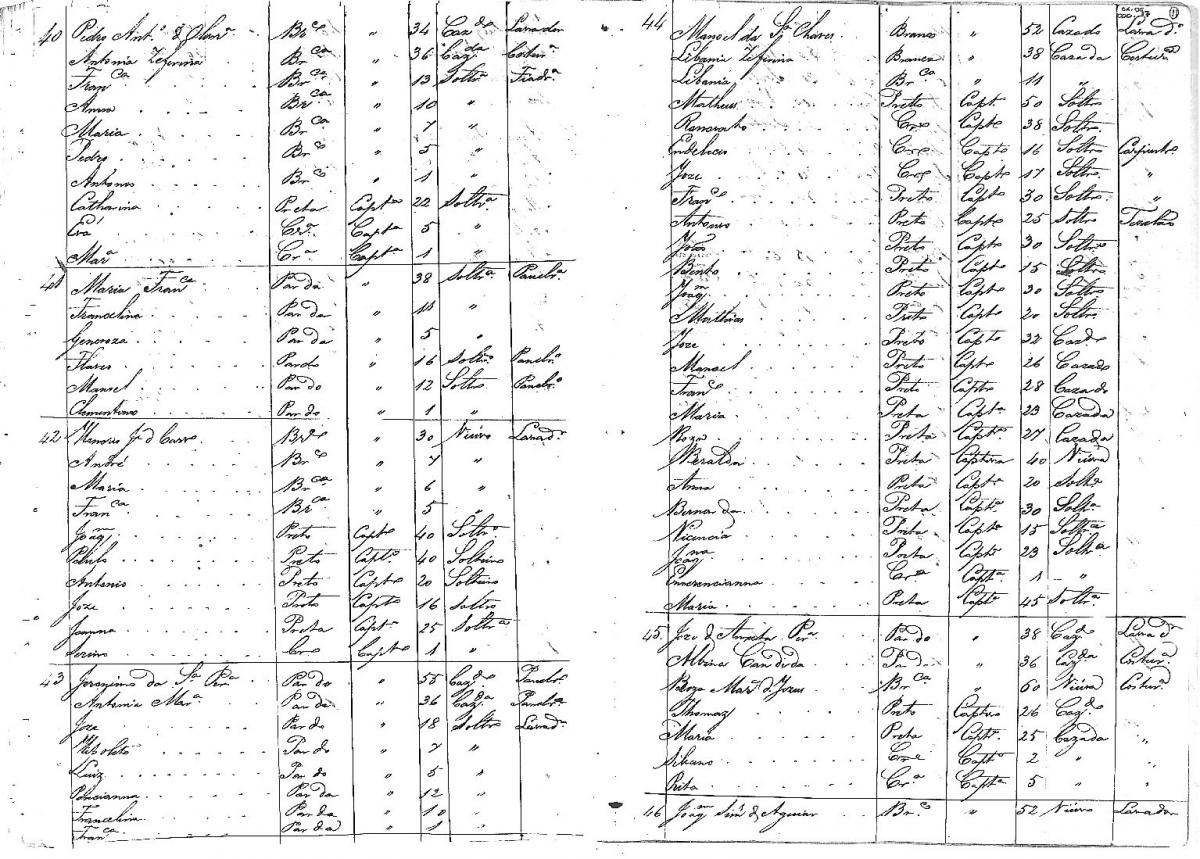 40 Pedro Ant.o d' Olivr.a Br.co " 34 Caz.do Lavrador
Antonia Zeferina Br.ca " 36 Caz.da Costur.a
Fran.ca Br.ca " 13 Soltr.a Fiadr.a
Anna Br.ca " 10 "
Maria Br.ca " 7 "
Pedro Br.co " 5 "
Antonio Br.co " 1 "
Catharina Preta Capt.a 22 Soltr.a
Eva Cr.a Capt.a 5 "
Mar.a Cr.a Capt.a 1 "
41 Maria Fran.ca Parda " 38 Soltr.a Panelr.a
Francelina Parda " 11 "
Generoza Parda " 5 "
Flores Pardo " 16 Soltr.o Panelr.o
Manoel Pardo " 12 Soltro Panelr.o
Clementino Pardo " 1 "
42 J.e d' Carv.o Br.co " 30 Viuvo Lavad.r
André Br.co " 7 "
Maria Br.ca " 6 "
Fran.ca Br.ca " 5 "
Joaq.m Preto Capt.o 40 Soltr.o
Preto Capt.o 40 Solteiro
Antonio Preto Capt.o 20 Solteiro
Joze Preto Capt.o 16 Soltro
Joanna Preta Capt.a 25 Soltr.a
Cr.o Capt.o 1 "
43 Jeronimo da S.a Per.a Pardo " 55 Caz.do Panelr.o
Antonia Mar.a Parda " 36 Caz.da Panelr.a
Joze Pardo " 18 Soltro Lavad.r
Hipolito Pardo " 7 "
Luiz Pardo " 5 "
Poncianna Parda " 12 "
Francelina Parda " 10 "
Fran.ca Parda " 1 "
11
44 Manoel da S.a Chaves Branco " 52 Cazado Lavrad.r
Libania Zeferina Branca " 38 Cazada Costur.a
Libania Br.ca " 11 "
Matheus Preto Capt.o 50 Soltro
Honorato Cr.o Capt.o 38 Soltro
Cr.o Capt.o 16 Soltro Carpintr.o
Joze Cr.o Capt.o 17 Soltro "
Fran.co Preto Capt.o 30 Soltro "
Antonio Preto Capt.o 25 Soltro
João Preto Capt.o 30 Soltro
Bento Preto Capt.o 15 Soltro
Joaq.m Preto Capt.o 30 Soltro
Mathias Preto Capt.o 20 Soltro
Joze Preto Capt.o 32 Caz.do
Manoel Preto Capt.o 26 Cazado
Fran.co Preto Capt.o 28 Cazado
Maria Preta Capt.a 23 Cazada
Roza Preta Capt.a 27 Cazada
Preta Captiva 40 Viuva
Anna Preta Capt.a 20 Soltr.a
Bernarda Preta Capt.a 30 Solt.a
Vicencia Preta Capt.a 15 Soltr.a
Joaq.na Preta Capt.a 23 Solt.a
Emerencianna Cr.a Capt.a 1 "
Maria Preta Capt.a 45 Soltr.a
45 Joze d' Per.a Pardo " 38 Caz.do Lavrad.r
Albina Candida Parda " 36 Caz.da Costur.a
Roza Mar.a d' Jezus Br.ca " 60 Viuva Costur.a
Thomaz Preto Captivo 26 Caz.do
Maria Preta Capt.a 25 Cazada "
Silvano Cr.o Capt.o 2 " "
Rita Cr.a Capt.a 5 " "
46 Joaq.m d' Aguiar Br.co " 52 Viuvo Lavrador